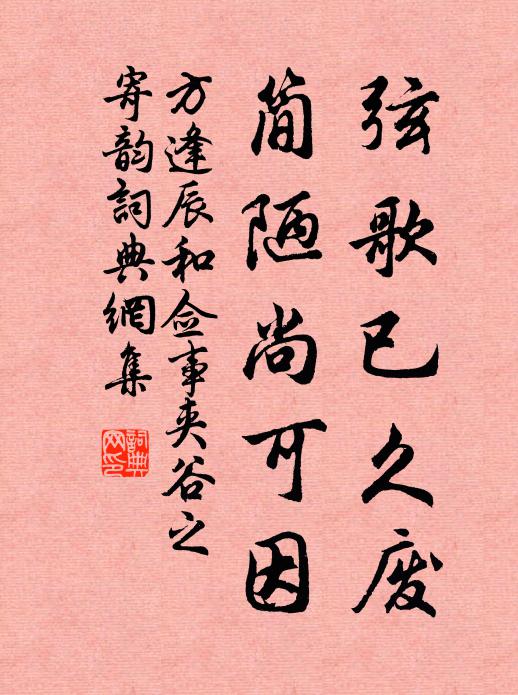 弦歌已久废
简陋尚可因
方逢辰和佥事夹谷之
寄韵詞典網集
詞典網印